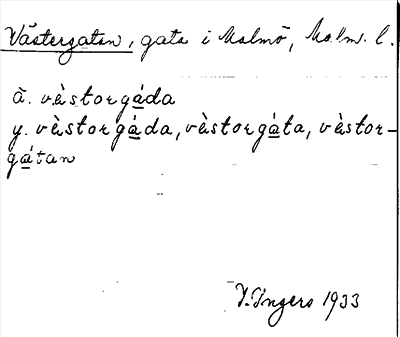 Västergatan, gata i Malmö, Malm. l.
ä. vὰstorgáda
y. vὰstorgáda, vὰstorgáta, vὰstor-
gátan
I. Ingers 1933